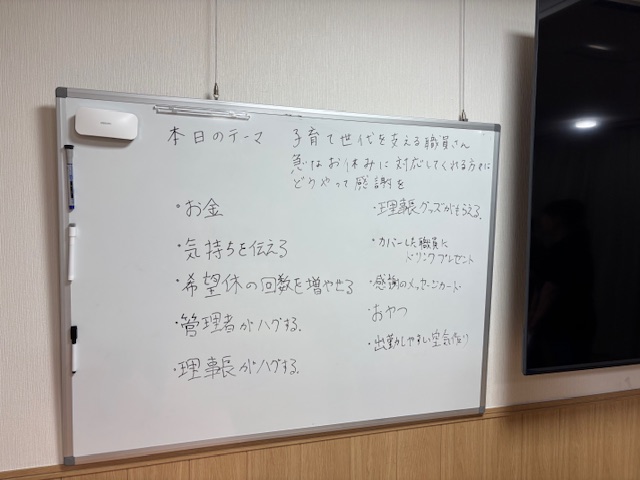 本日のテーマ 子育て世代を支える職員さん
急なお休みに対応してくれる方々に
どうやって感謝を
・お金
・気持ちを伝える
・希望休の回数を増やせる
・管理者がハグする.
・理事長がハグする.
・理事長グッズがもらえる.
・カバーした職員に
ドリンクプレゼント
・感謝のメッセージカード
・おやつ
・出勤しやすい空気作り